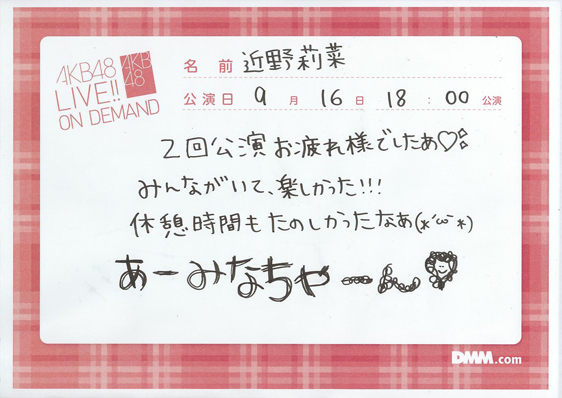 AKB48
LIVE!!
ON DEMAND
AKB
48
名前 近野莉菜
公演日 9月16日 18:00 公演
2回公演お疲れ様でしたあ♡
みんながいて、楽しかった!!!
休憩時間もたのしかったなあ(*´ω`*)
あーみなちゃーん
DMM.com